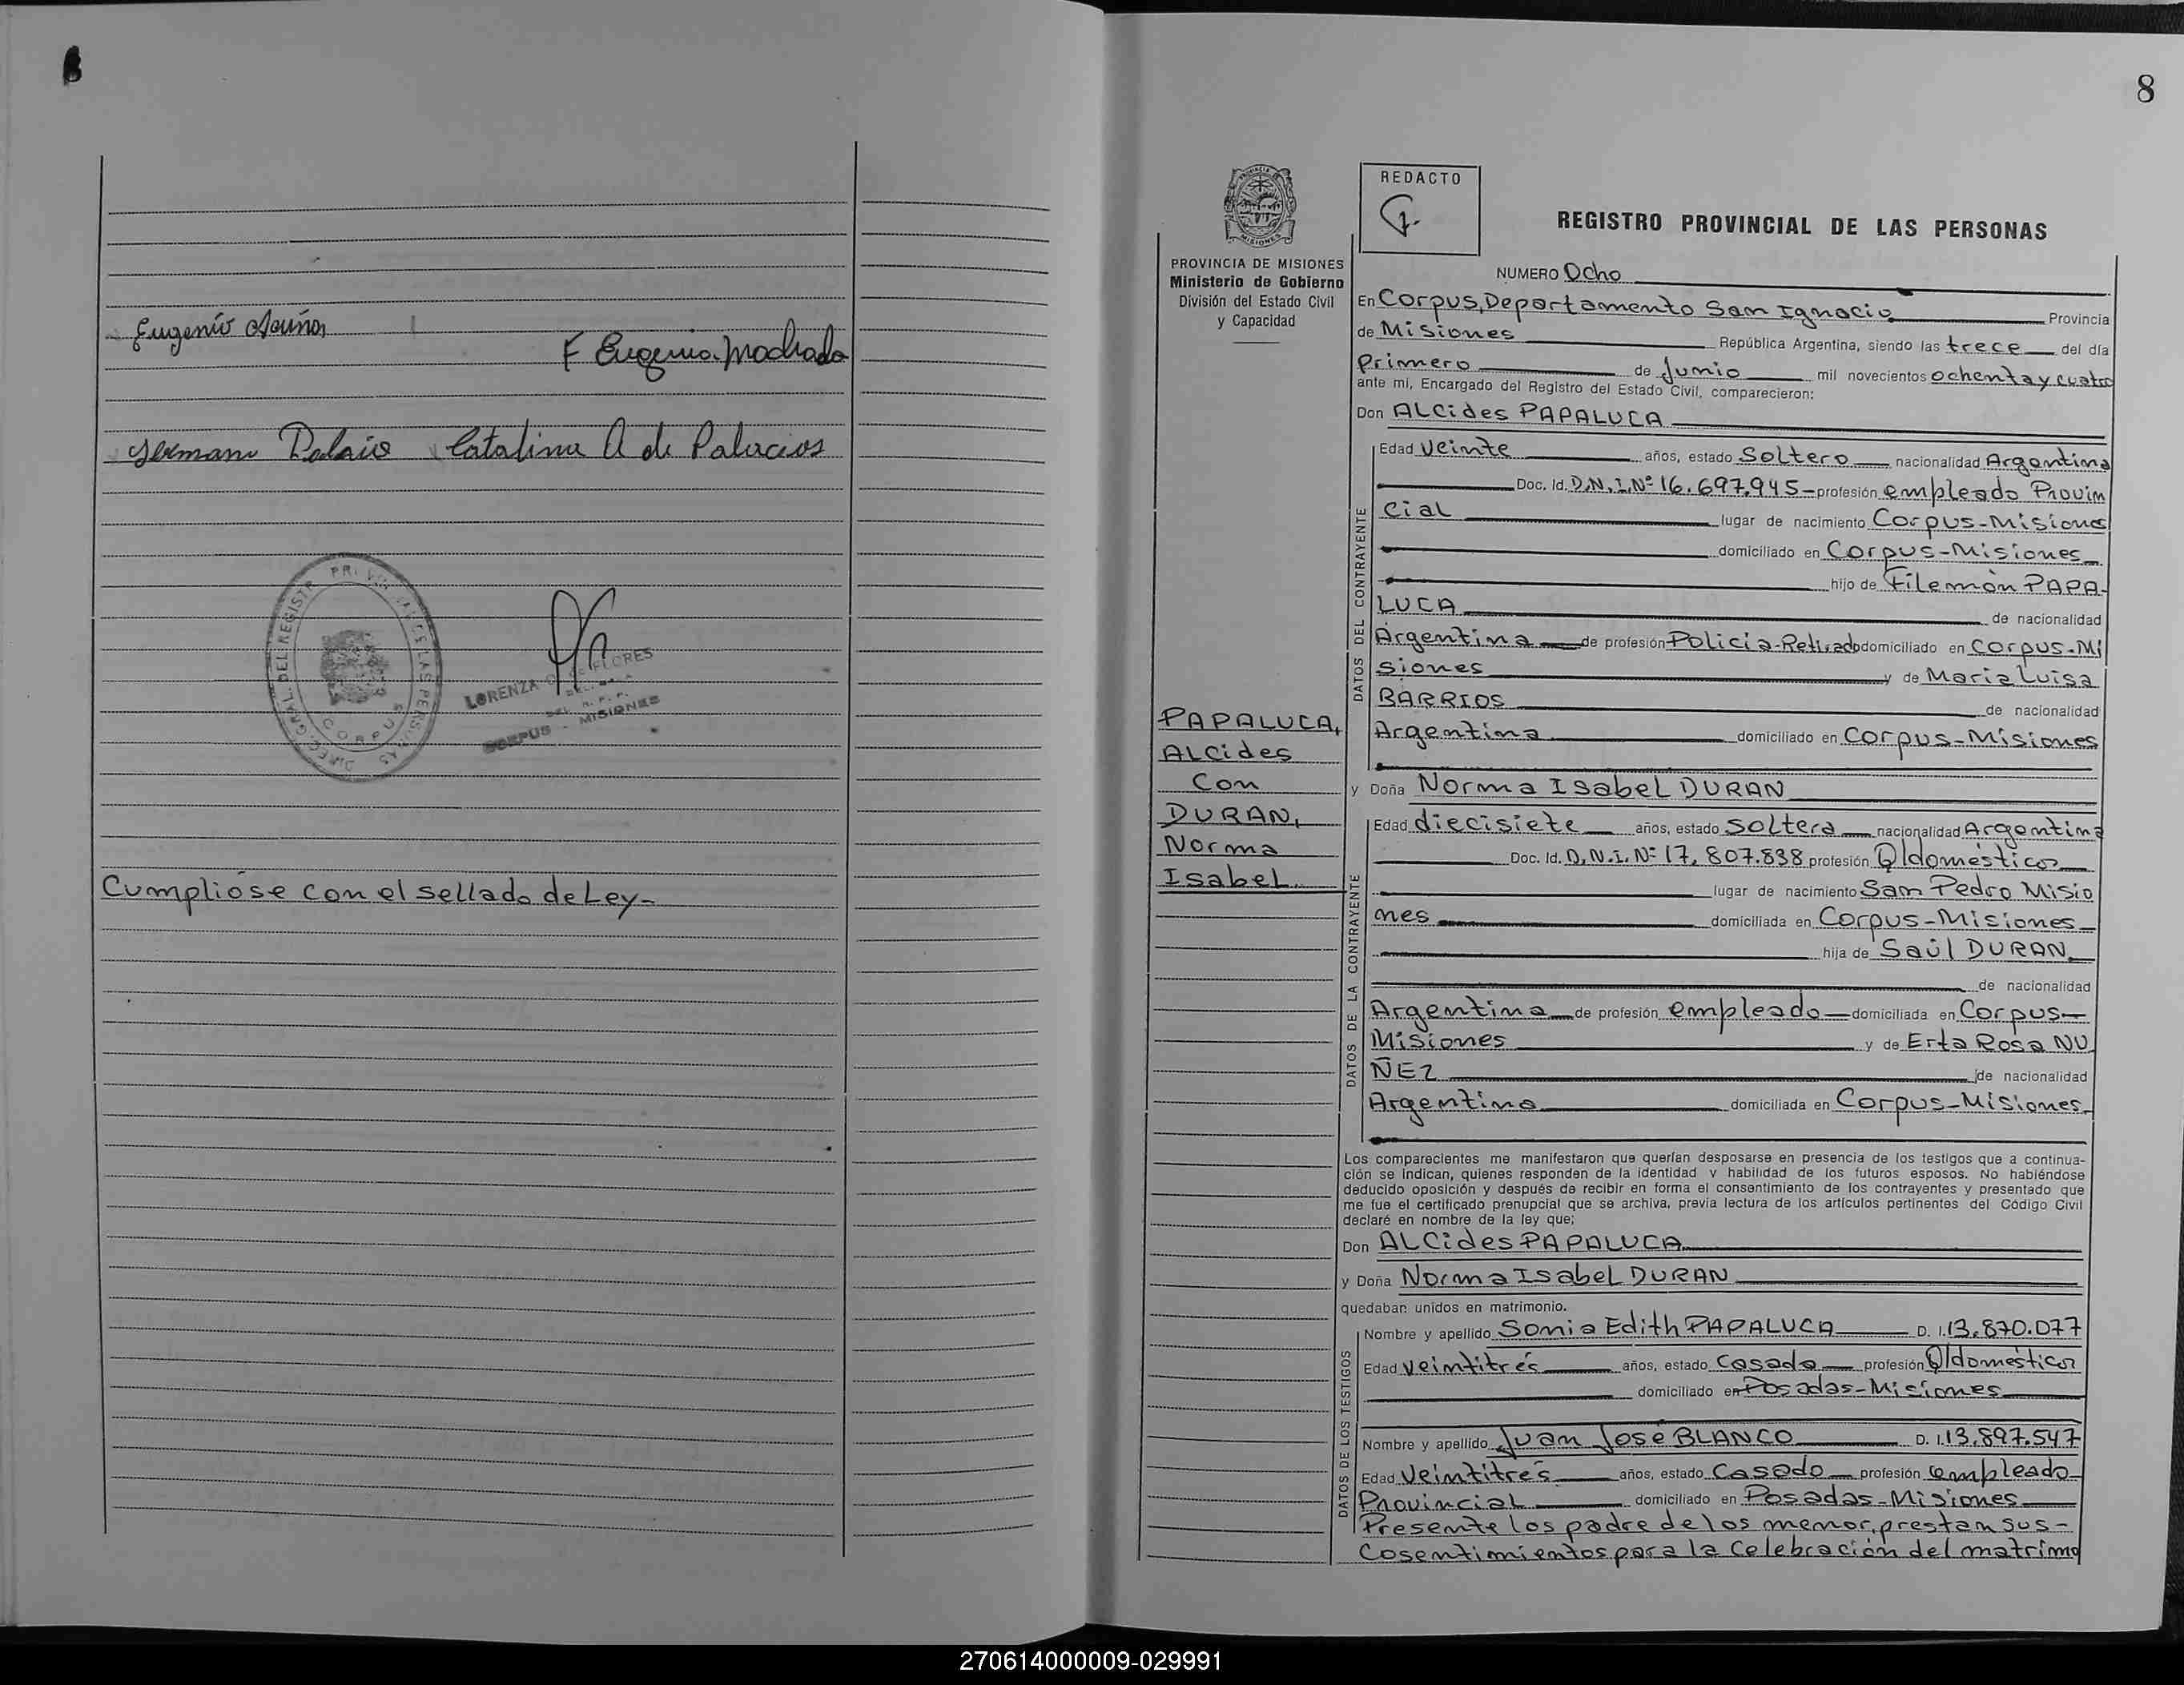 8
Eugenio Acuña
F Eugenia Machado
German Palacio Catalina A de Palacios
DIREC. GRAL. DEL REGISTRO PROVINCIAL DE LAS PERSONAS
CORPUS
LORENZA G. DE FLORES
DEL R. P. P.
CORPUS - MISIONES
Cumplióse con el sellado de Ley-
8
PROVINCIA DE MISIONES
Ministerio de Gobierno
División del Estado Civil
y Capacidad
PAPALUCA,
ALcides
Con
DURAN,
Norma
Isabel
REDACTO
REGISTRO PROVINCIAL DE LAS PERSONAS
NUMERO Ocho
En Corpus, Departamento San Ignacio Provincia
de Misiones República Argentina, siendo las trece del día
primero de Junio mil novecientos ochenta y cuatro
ante mí, Encargado del Registro del Estado Civil, comparecieron:
Don ALcides PAPALUCA
DATOS DEL CONTRAYENTE
Edad veinte años, estado Soltero nacionalidad Argentina
Doc. Id. D.N.I.Nº 16.697.945- profesión empleado Provin
cial lugar de nacimiento Corpus-Misiones
domiciliado en Corpus-Misiones
hijo de Filemón PAPA-
LUCA de nacionalidad
Argentina de profesión Policía-Retirado domiciliado en Corpus-Mi
siones y de María Luisa
BARRIOS de nacionalidad
Argentina domiciliado en Corpus-Misiones
y Doña Norma Isabel DURAN
DATOS DE LA CONTRAYENTE
Edad diecisiete años, estado soltera nacionalidad Argentina
Doc. Id. D.N.I. Nº 17.807.838 profesión Q/domésticos
lugar de nacimiento San Pedro Misio
nes domiciliada en Corpus-Misiones
hija de Saúl DURAN
de nacionalidad
Argentina de profesión empleado domiciliada en Corpus-
Misiones y de Erta Rosa NU
ÑEZ de nacionalidad
Argentina domiciliada en Corpus-Misiones
Los comparecientes me manifestaron que querían desposarse en presencia de los testigos que a continua-
ción se indican, quienes responden de la identidad y habilidad de los futuros esposos. No habiéndose
deducido oposición y después de recibir en forma el consentimiento de los contrayentes y presentado que
me fue el certificado prenupcial que se archiva, previa lectura de los artículos pertinentes del Código Civil
declaré en nombre de la ley que;
Don ALcides PAPALUCA
y Doña Norma Isabel DURAN
quedaban unidos en matrimonio.
DATOS DE LOS TESTIGOS
Nombre y apellido Sonia Edith PAPALUCA D. I. 13.870.077
Edad veintitrés años, estado Casada profesión Q/doméstico
domiciliado en Posadas-Misiones
Nombre y apellido Juan José BLANCO D. I. 13.897.547
Edad Veintitrés años, estado Casado profesión empleado
Provincial domiciliado en Posadas-Misiones
Presente los padre de los menor, prestan sus-
Cosentimientos para la Celebración del matrimo
270614000009-029991